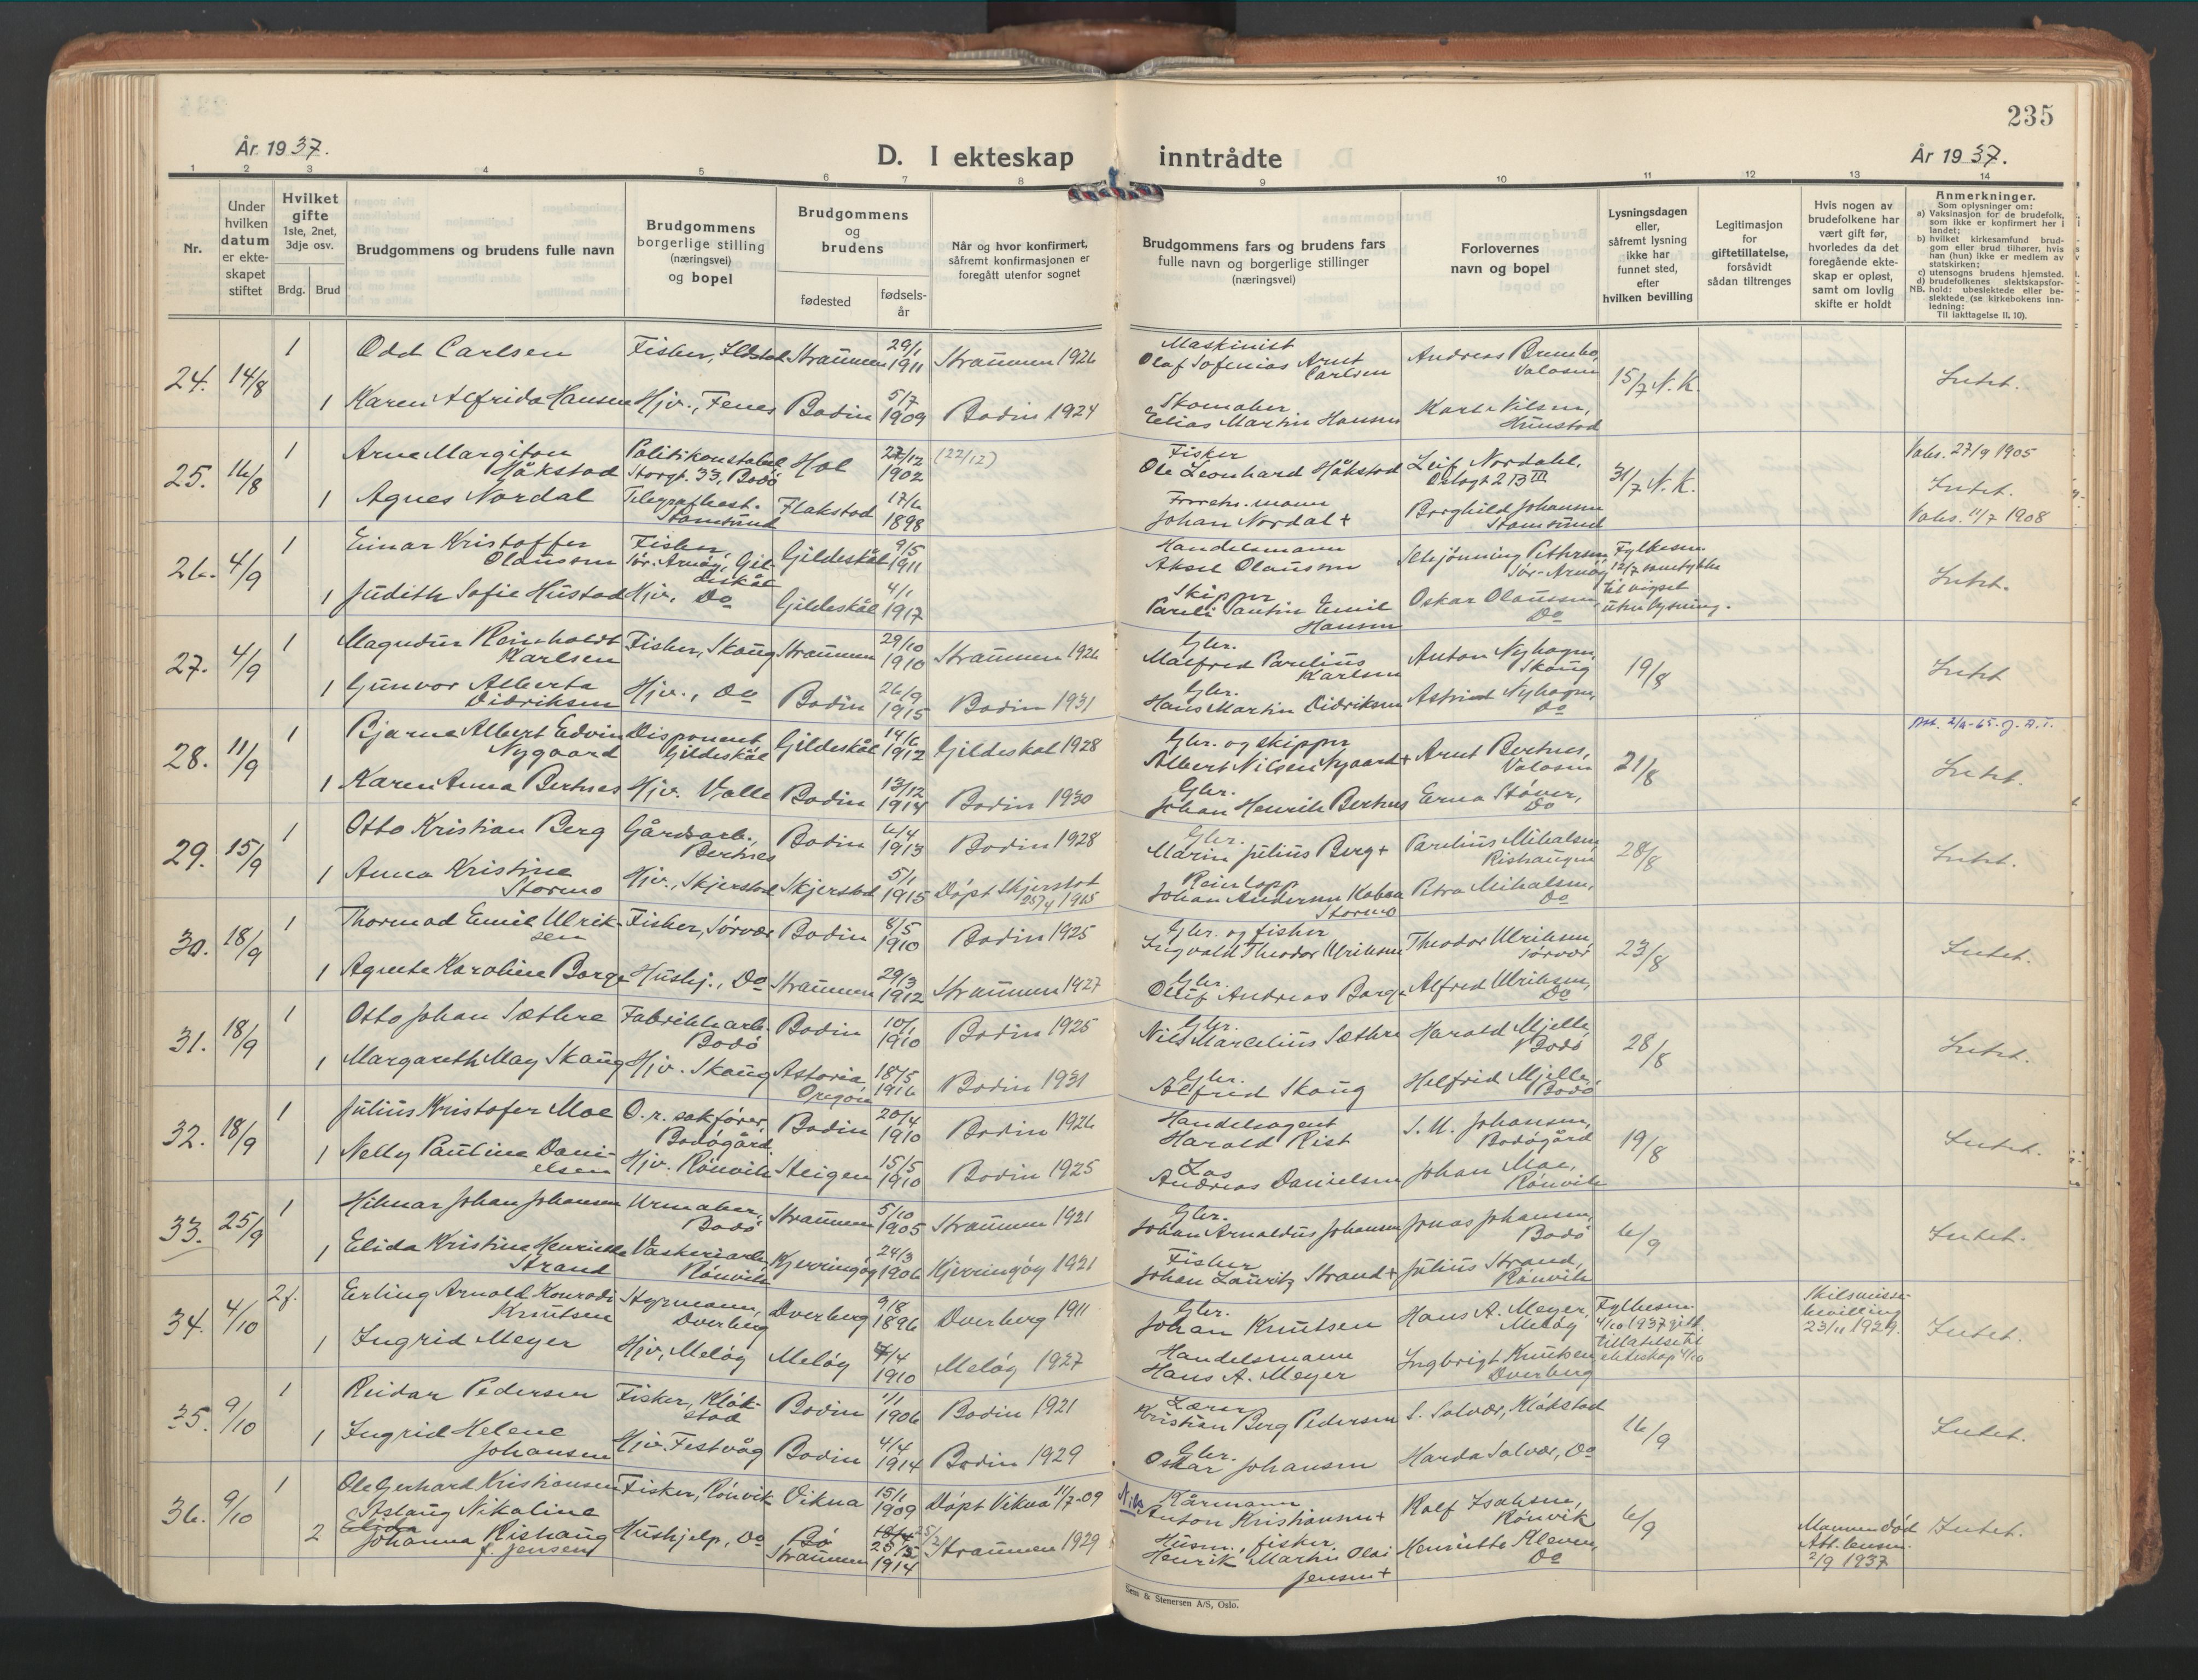 235
År 1937.
D. I ekteskap inntrådte
År 1937.
1 2 3 4 5 6 7 8 9 10 11 12 13 14
Nr.
Under
hvilken
datum
er ekte-
skapet
stiftet
Hvilket
gifte
1ste, 2net,
3dje osv.
Brdg. Brud
Brudgommens og brudens fulle navn
Brudgommens
borgerlige stilling
(næringsvei)
og bopel
Brudgommens
og
brudens
fødested
fødsels-
år
Når og hvor konfirmert,
såfremt konfirmasjonen er
foregått utenfor sognet
Brudgommens fars og brudens fars
fulle navn og borgerlige stillinger
(næringsvei)
Forlovernes
navn og bopel
Lysningsdagen
eller,
såfremt lysning
ikke har
funnet sted,
efter
hvilken bevilling
Legitimasjon
for
giftetillatelse,
forsåvidt
sådan tiltrenges
Hvis nogen av
brudefolkene har
vært gift før,
hvorledes da det
foregående ekte-
skap er opløst,
samt om lovlig
skifte er holdt
Anmerkninger.
Som oplysninger om:
a) Vaksinasjon for de brudefolk,
som ikke er konfirmert her i
landet;
b) hvilket kirkesamfund brud-
gom eller brud tilhører, hvis
han (hun) ikke er medlem av
statskirken;
c) utensogns brudens hjemsted.
d) brudefolkenes slektskapsfor-
NB. hold: ubeslektede eller be-
slektede (se kirkebokens inn-
ledning:
Til iakttagelse II. 10).
24. 14/8 1 Odd Carlsen Fisker, Straumen 29/1 1911 Straumen 1926
Maskinist
Olaf Sofenias Arnt Carlsen Andreas 15/7 N. K. Intet.
1 Karen Alfrida Hansen Hjv., Fenes Bodin 5/7 1909 Bodin 1924
Skomaker
Elias Martin Hansen Karl Nilsen,
25. 16/8 1 Arne Margiton Håkstad Politikonstabel Storgt. 33, Bodö Hol 27/12 1902 (22/12)
Fisker
Ole Leonhard Håkstad Leif Nordahl, 31/7 N. K. Vaks. 27/9 1905
Intet.
1 Agnes Nordal Telegrafbest. Stamsund Flakstad 17/6 1898
Forretn.mann
Johan Nordal + Borghild Johansen Stamsund Vaks. 11/7 1908
26. 4/9 1 Einar Kristoffer Olaussen Fisker, Sør-Arnøy, Gildeskål Gildeskål 9/5 1911
Handelsmann
Aksel Olaussen Schjønning Pettersen, Sør-Arnøy Fylkesm. 12/7 samtykke til vigsel uten lysning. Intet.
1 Judith Sofie Hustad Hjv. Do Gildeskål 4/1 1917
Skipper
Pareli Santin Emil Hansen Oskar Olaussen, Do
27. 4/9 1 Magndur Reinholdt Karlsen Fisker, Skaug Straumen 29/10 1910 Straumen 1926
Gbr.
Malfred Parelius Karlsen Anton Nyhagen, Skaug 19/8 Intet
1 Gunvor Alberta Didriksen Hjv., Do Bodin 26/9 1915 Bodin 1931
Gbr.
Hans Martin Didriksen Astrid Nyhagen, Do
28. 11/9 1 Bjarne Albert Edvin Nygaard Disponent Gildeskål Gildeskål 14/6 1912 Gildeskål 1928
Gbr. og skipper
Albert Nilsen Nygaard + Arnt Bertnes, 21/8 Intet.
1 Karen Anna Bertnes Hjv. Valle Bodin 13/12 1914 Bodin 1930
Gbr.
Johan Henrik Bertnes Erna Støver, Do
29. 15/9 1 Otto Kristian Berg Gårdsarb., Bertnes Bodin 6/4 1913 Bodin 1928
Gbr.
Marin Julius Berg + Parelius Mihalsen, Rishaugen 28/8 Intet.
1 Anna Kristine Stormo Hjv., Skjerstad Skjerstad 5/1 1915 Döpt Skjerstad 25/4 1915
Johan Andersen Stormo Petra Mihalsen, Do
30. 18/9 1 Thormod Emil Ulriksen Fisker, Sørvær Bodin 8/5 1910 Bodin 1925
Gbr. og fisker
Ingvald Theodor Ulriksen Theodor Ulriksen, Sørvær 23/8 Intet.
1 Agnete Karoline Barge Hushj., Do Straumen 29/3 1912 Straumen 1927
Gbr.
Oluf Andreas Barge Alfred Ulriksen, Do
31. 18/9 1 Otto Johan Sæthre Fabrikkarb. Bodö Bodin 10/1 1910 Bodin 1925
Gbr.
Nils Marcelius Sæthre Harald Mjelle, Bodö 28/8 Intet.
1 Margareth May Skaug Hjv. Skaug Astoria, Oregon 18/5 1916 Bodin 1931
Gbr.
Alfred Skaug Helfrid Mjelle, Bodö
32. 18/9 1 Julius Kristofer Moe O.r. sakfører, Bodøgård Bodin 20/4 1910 Bodin 1926
Handelsagent
Harald Rist S. M. Johansen, Bodøgård 19/8 Intet.
1 Nelly Pauline Danielsen Hjv. Rönvik Steigen 15/5 1910 Bodin 1925
Los
Andreas Danielsen Johan Moe, Rönvik
33. 25/9 1 Hilmar Johan Johansen Urmaker, Bodö Straumen 5/10 1905 Straumen 1921
Gbr.
Johan Arnoldus Johansen Jonas Johansen, Bodö 6/9 Intet.
1 Elida Kristine Henriette Strand Vaskeriarb. Rönvik Kjerringøy 24/3 1906 Kjerringøy 1921
Fisker
Johan Lauritz Strand + Julius Strand, Rönvik
34. 4/10 2f. Erling Arnold Konradi Knutsen Styrmann, Dverberg Dverberg 9/8 1896 Dverberg 1911
Gbr.
Johan Knutsen Hans A. Meyer, Meløy Fylkesm. 4/10 1937 tillatelse til ekteskap 4/10 Skilsmisse-bevilling 23/11 1929. Intet.
1 Ingrid Meyer Hjv., Meløy Meløy 7/4 1910 Meløy 1927
Handelsmann
Hans A. Meyer Ingbrigt Knutsen, Dverberg
35. 9/10 1 Reidar Pedersen Fisker, Kløkstad Bodin 1/1 1906 Bodin 1921
Kristian Berg Pedersen S. Salvær, Kløkstad 16/9 Intet.
1 Ingrid Helene Johansen Hjv. Festvåg Bodin 4/4 1914 Bodin 1929
Gbr.
Oskar Johansen Harda Salvær, Do
36. 9/10 1 Ole Gerhard Kristiansen Fisker, Rönvik Vikna 15/1 1909 Döpt Vikna 11/7-09
Nils Kårmann
Anton Kristiansen + Rolf Isaksen, Rönvik 6/9 Intet.
2 Aslaug Nikoline Elida Johanna Rishaug f. Jensen Hushjelp, Do Bö Straumen 25/2 1914 Straumen 1929
Husm., fisker
Henrik Martin Olai Jensen + Henriette Kleven, Do Mannen død Att. 2/9 1937
Sem & Stenersen A/S, Oslo.